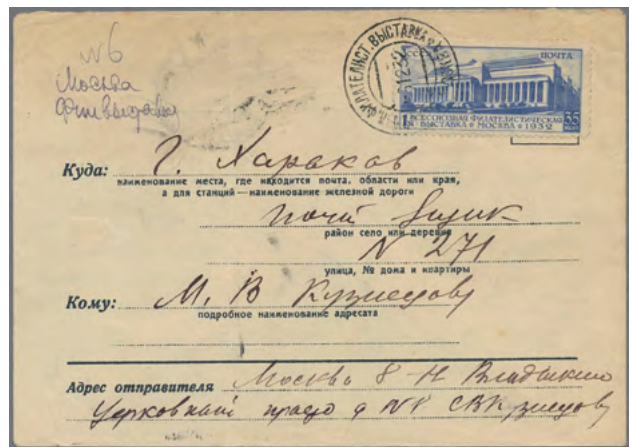 №6
Москва
Фил выставка
ФИЛАТЕЛИСТ. ВЫСТАВКА
ПОЧТА
ВСЕСОЮЗНАЯ ФИЛАТЕЛИСТИЧЕСКАЯ
ВЫСТАВКА • МОСКВА • 1932
35
Куда: г. Харьков
наименование места, где находится почта, области или края,
а для станций—наименование железной дороги
почт ящик
район село или деревня
N 271
улица, № дома и квартиры
Кому: М. В Кузнецову
подробное наименование адресата
Адрес отправителя Москва 8 - Н. Владыкино
Церковный д №8 Кузнецову